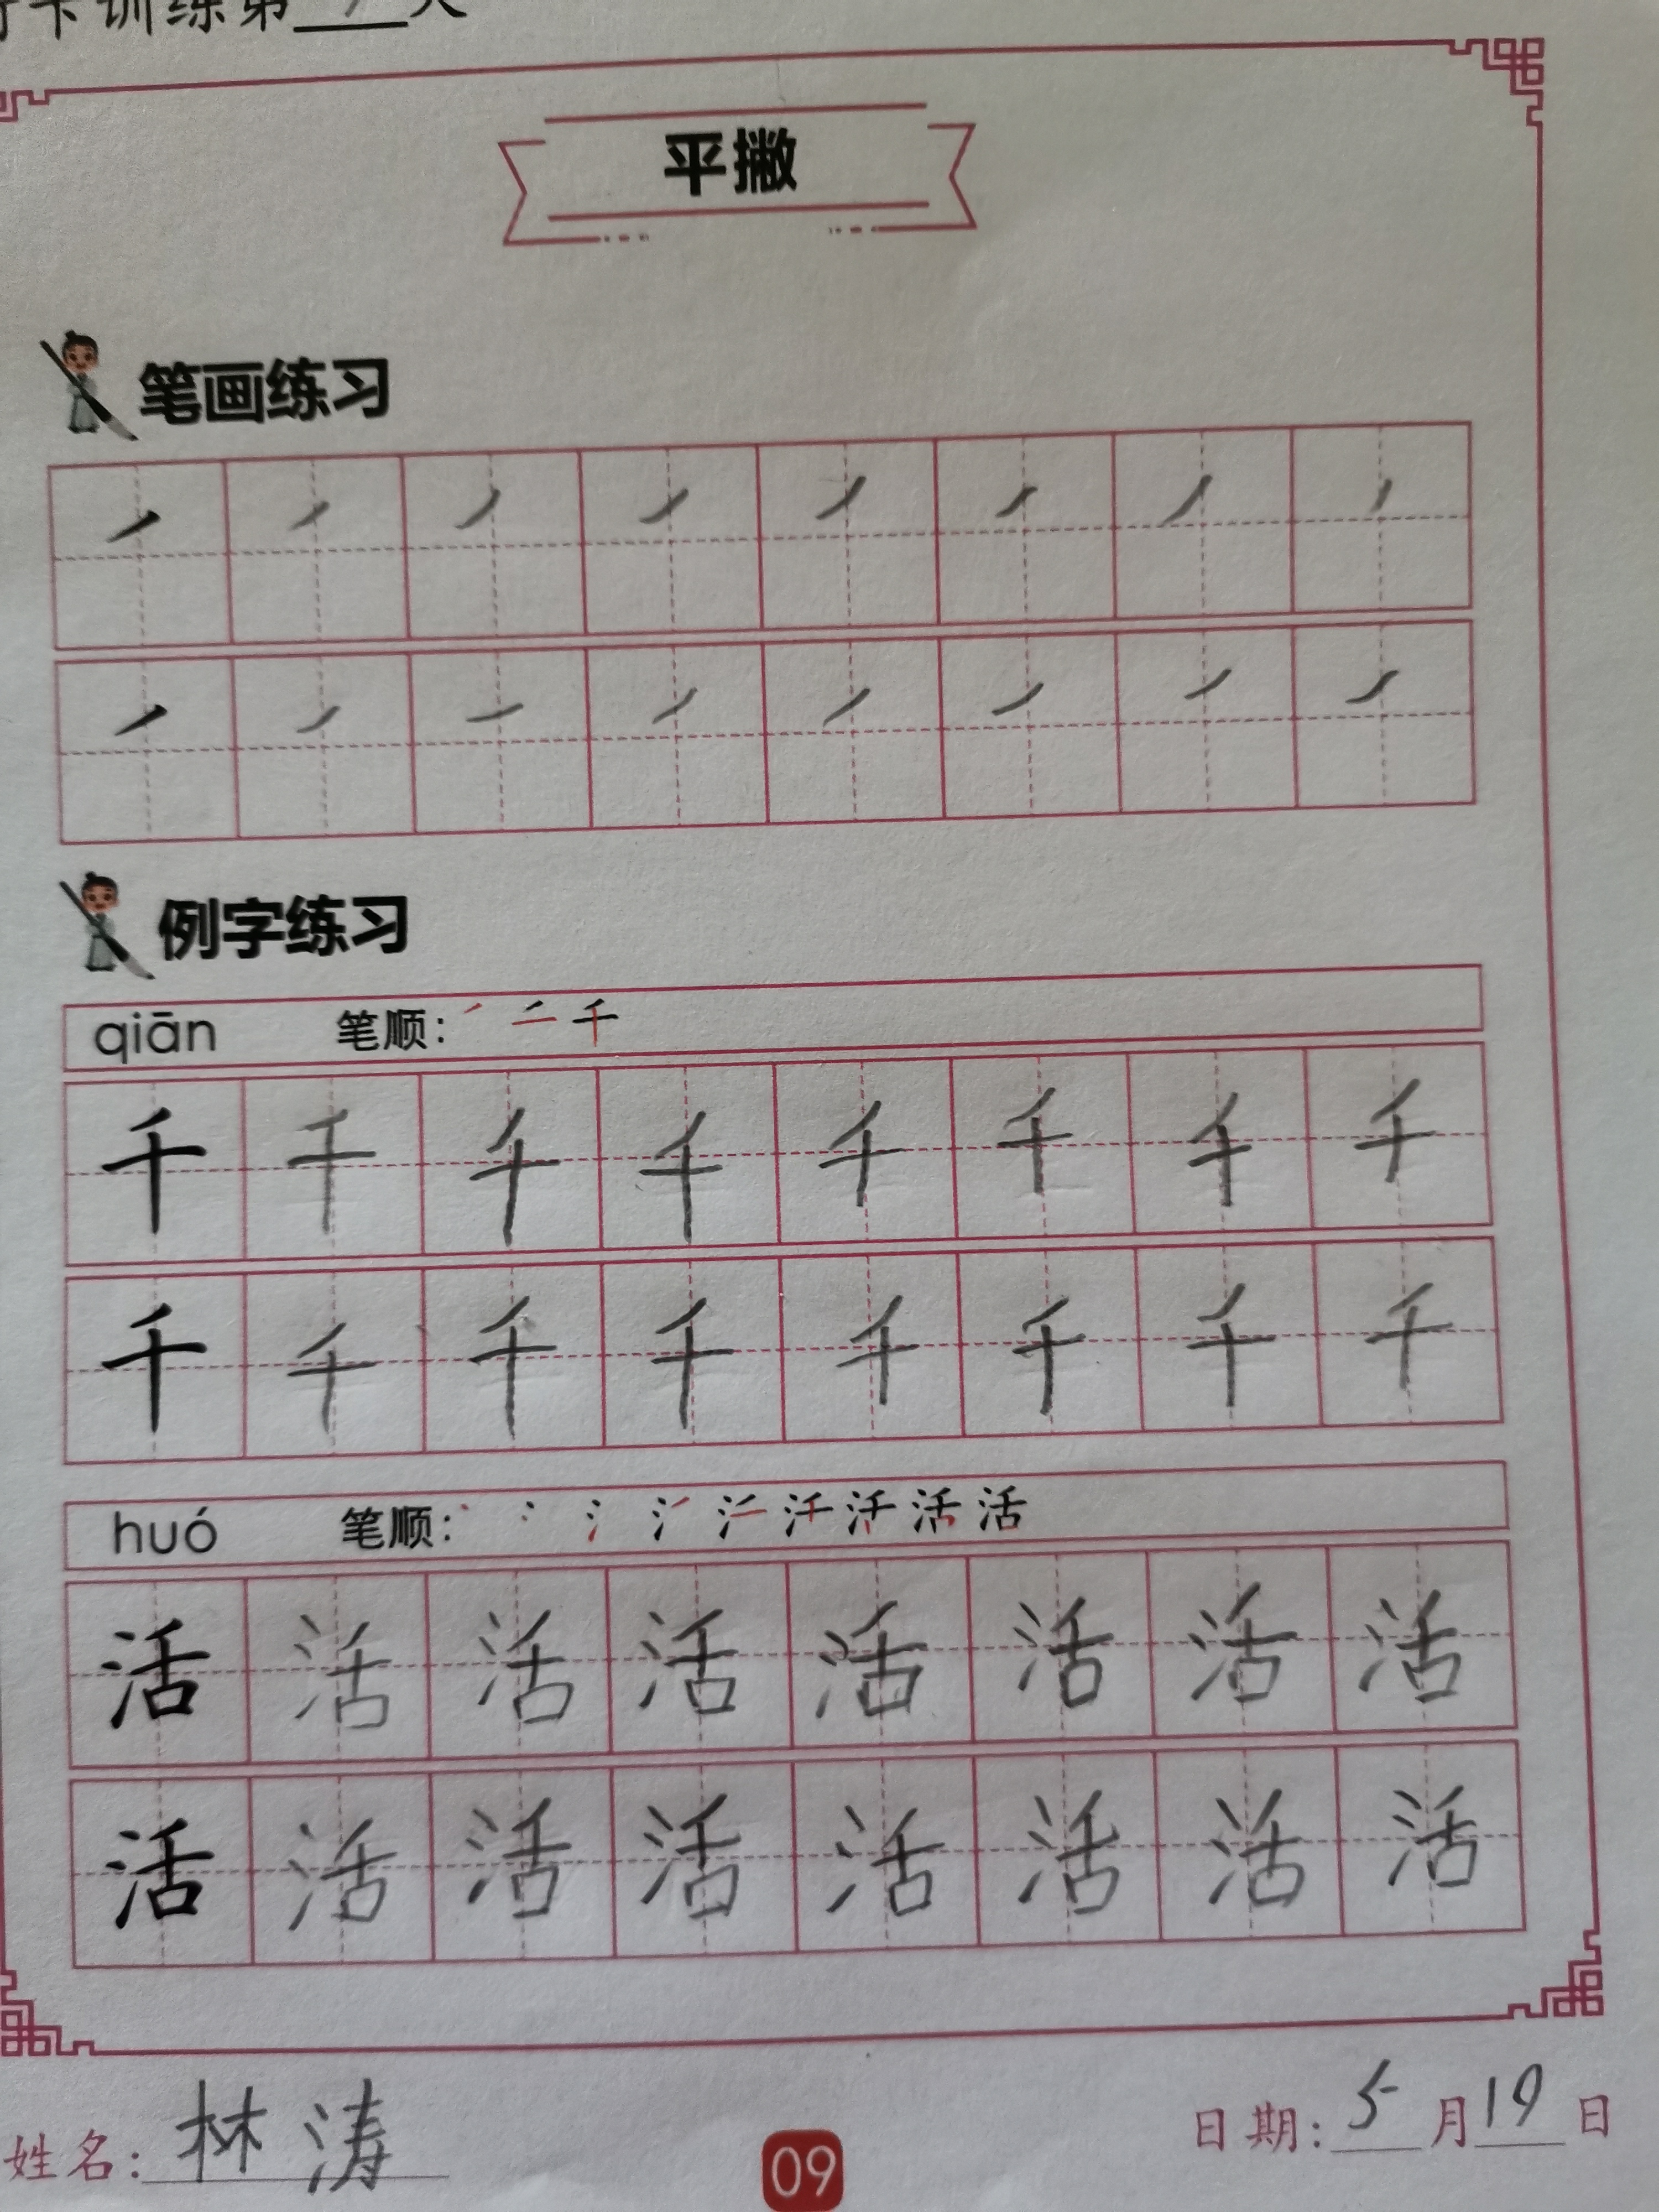 卡训练第 天
平撇
笔画练习
例字练习
qiān 笔顺:
千 千 千 千 千 千 千 千
千 千 千 千 千 千 千 千
huó 笔顺:
活 活 活 活 活 活 活 活
活 活 活 活 活 活 活 活
姓名: 林涛
09
日期: 5月19日